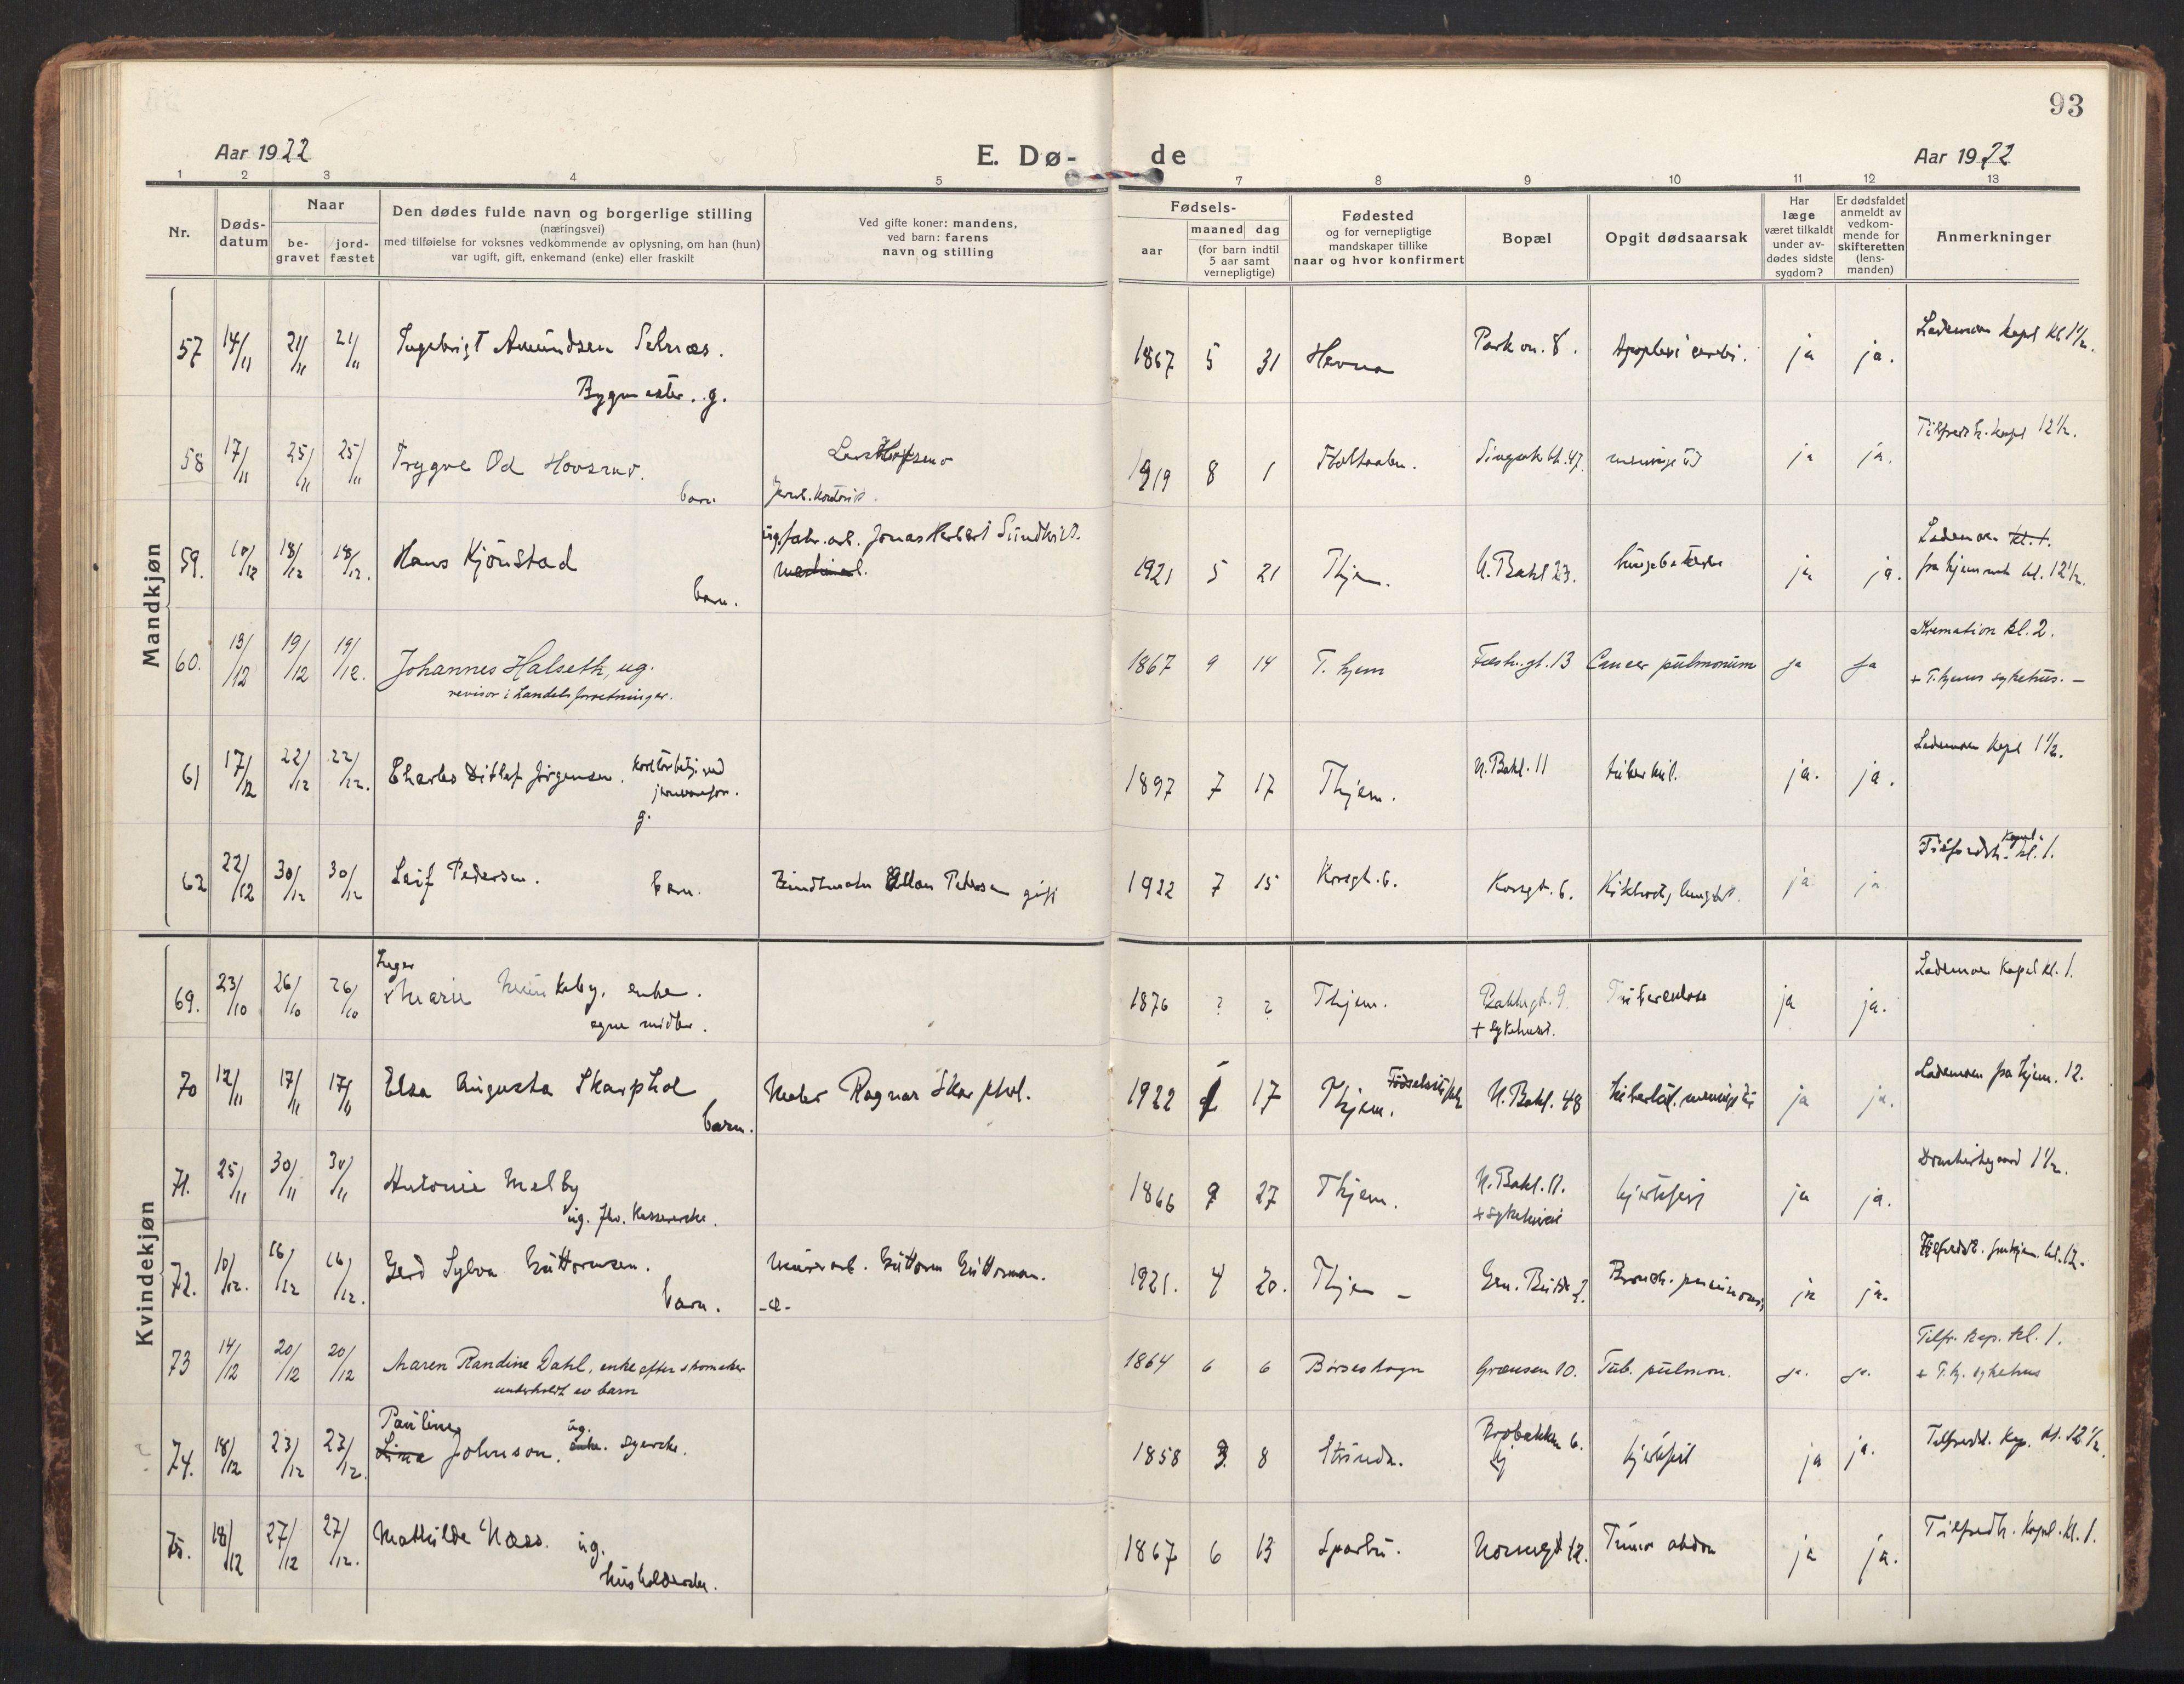 93
Aar 1922
E. Dø-
de
Aar 1922
1 2 3 4 5 7 8 9 10 11 12 13
Nr.
Døds-
datum
Naar
be-
gravet
jord-
fæstet
Den dødes fulde navn og borgerlige stilling
(næringsvei)
med tilføielse for voksnes vedkommende av oplysning, om han (hun)
var ugift, gift, enkemand (enke) eller fraskilt
Ved gifte koner: mandens,
ved barn: farens
navn og stilling
Fødsels-
aar
maaned dag
(for barn indtil
5 aar samt
vernepligtige)
Fødested
og for vernepligtige
mandskaper tillike
naar og hvor konfirmert
Bopæl
Opgit dødsaarsak
Har
læge
været tilkaldt
under av-
dødes sidste
sygdom?
Er dødsfaldet
anmeldt av
vedkom-
mende for
skifteretten
(lens-
manden)
Anmerkninger
Mandkjøn
57 14/11 21/11 21/11 Ingebrigt Amundsen Selnæs. 1867 5 31 Hevne Parkv. 8. Apoplexi cerebri. ja ja. Lademoen kapel kl 1½.
Bygmester. g.
58 17/11 25/11 25/11 Trygve Od Hovsrud. 1919 8 1 Holtaalen. 47. ja ja. Tilfredsh. kapel 12½.
barn
59. 10/12 18/12 18/12. Hans Kjönstad fabr. arb. Jonas Herbert Sundkvist. 1921 5 21 Thjem. N. Bakl 23. ja ja. Lademoen kl. 1.
barn. fra hjemmet kl. 12½.
60. 13/12 19/12 19/12. Johannes Halseth, ug. 1867 9 14 T. hjem 13 Cancer pulmonum ja ja Kremation kl. 2.
revisor i handelsforretninger. + T.hjems sykehus. —
61 17/12 22/12 22/12. Charles Ditlef Jörgensen. 1897 7 17 Thjem. N. Bakl. 11 tuberkul. ja. ja. Lademoen kapel 1½.
g.
62 22/12 30/12 30/12 Leif Pedersen. barn. Pedersen gift 1922 7 15 Korsgt. 6. Korsgt. 6. Kikhoste, ja ja Tilfredsh. kapel. kl. 1.
Kvindekjøn
69. 23/10 26/10 26/10 Inger Marie Munkeby, enke. 1876 ? ? Thjem. Baklagt. 9. Tuberculose ja ja. Lademoen kapel kl. 1.
egne midler. + Sykehuset.
70 12/11 17/11 17/11 Elsa Augusta Skarphol Maler Ragnar Skarphol. 1922 1 17 Thjem. N. Bakl. 48 ja ja. Lademoen fra hjem. 12.
barn.
71. 25/11 30/11 30/11 Antonie Melby 1866 9 27 Thjem. N. Bakl. 11. hjertefeil ja ja. Domkirkegaard 1½.
ug. + Sykehuset
72. 10/12. 16/12 16/12. Gerd Sylva Guttormsen. Murerarb. Guttorm Guttormsen. 1921. 4 20. Thjem — Bronch. pneumoni ja ja.
barn.
73 14/12 20/12 20/12 Maren Randine Dahl, enke efter skomaker 1864 6 6 Börseskogn Grænsen 10. Tub. pulmon. ja. ja. Tilfr. kap. kl. 1.
underholdt av barn + T.hj. sykehus
74. 18/12 23/12 23/12. Pauline Line Johnson. ug. enke. syerske. 1858 3 8 Strinda. Brobakken 6. hjertefeil ja ja. Tilfredsh. kap. kl. 12½.
75. 18/12 27/12 27/12. Mathilde Næss. ug. 1867 6 13 Sparbu. 12. Tumor abdom ja ja. Tilfredsh. kapel. kl. 1.
husholderske.